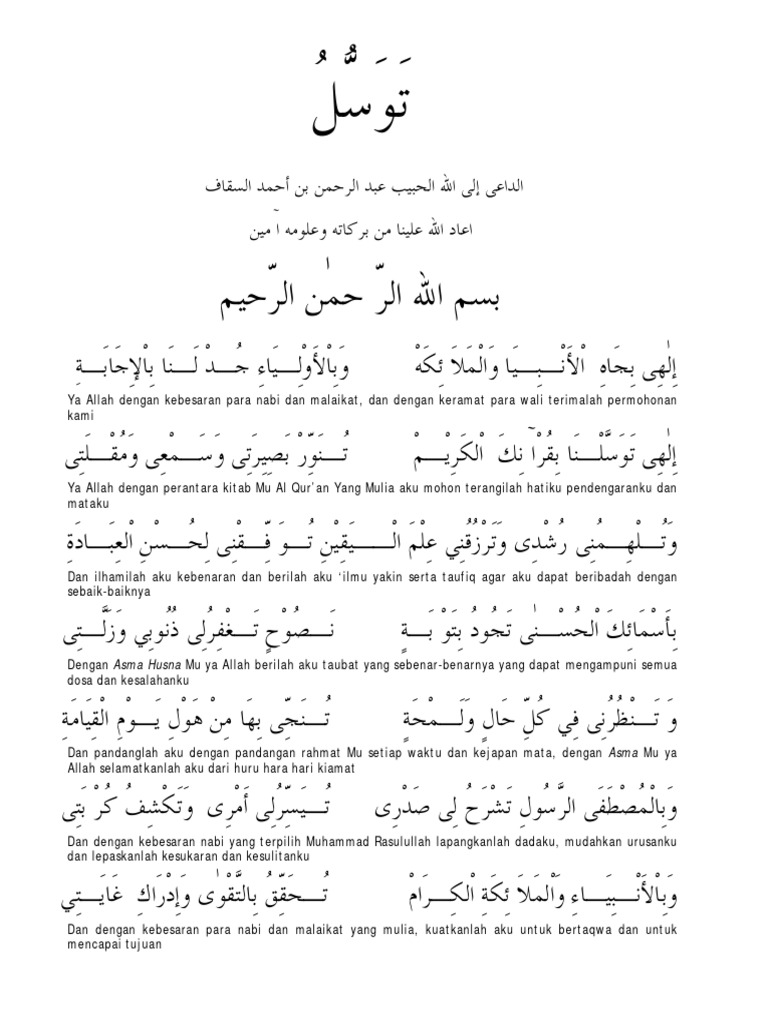 تَوَسُّلُ
الداعى إلى الله الحبيب عبد الرحمن بن أحمد السقاف
اعاد الله علينا من بركاته وعلومه آمين
بسم الله الرّحمٰن الرّحيم
إِلٰهِى بِجَاهِ اْلأَنْبِيَا وَالْمَلاَئِكَهْ وَبِاْلأَوْلِيَاءِ جُدْ لَنَا بِاْلإِجَابَةِ
Ya Allah dengan kebesaran para nabi dan malaikat, dan dengan keramat para wali terimalah permohonan
kami
إِلٰهِى تَوَسَّلْنَا بِقُرْآنِكَ الْكَرِيْمْ تُنَوِّرْ بَصِيِرَتِى وَسَمْعِى وَمُقْلَتِى
Ya Allah dengan perantara kitab Mu Al Qur'an Yang Mulia aku mohon terangilah hatiku pendengaranku dan
mataku
وَتُلْهِمُنِى رُشْدِى وَتَرْزُقُنِي عِلْمَ الْيَقِيْنِ تُوَفِّقْنِى لِحُسْنِ الْعِبَادَةِ
Dan ilhamilah aku kebenaran dan berilah aku ‘ilmu yakin serta taufiq agar aku dapat beribadah dengan
sebaik-baiknya
بِأَسْمَائِكَ الْحُسْنٰى تَجُودُ بِتَوْبَةٍ نَصُوْحٍ تَغْفِرُلِى ذُنُوبِي وَزَلَّتِى
Dengan Asma Husna Mu ya Allah berilah aku taubat yang sebenar-benarnya yang dapat mengampuni semua
dosa dan kesalahanku
وَتَنْظُرُنِى فِي كُلِّ حَالٍ وَلَمْحَةٍ تُنَجِّى بِهَا مِنْ هَوْلِ يَوْمِ الْقِيَامَةِ
Dan pandanglah aku dengan pandangan rahmat Mu setiap waktu dan kejapan mata, dengan Asma Mu ya
Allah selamatkanlah aku dari huru hara hari kiamat
وَبِالْمُصْطَفَى الرَّسُولِ تَشْرَحُ لِى صَدْرِى تُيَسِّرُلِى أَمْرِى وَتَكْشِفُ كُرْبَتِى
Dan dengan kebesaran nabi yang terpilih Muhammad Rasulullah lapangkanlah dadaku, mudahkan urusanku
dan lepaskanlah kesukaran dan kesulitanku
وَبِاْلأَنْبِيَاءِ وَالْمَلاَئِكَةِ الْكِرَامْ تُحَقِّقُ بِالتَّقْوٰى وَإِدْرَاكِ غَايَتِي
Dan dengan kebesaran para nabi dan malaikat yang mulia, kuatkanlah aku untuk bertaqwa dan untuk
mencapai tujuan